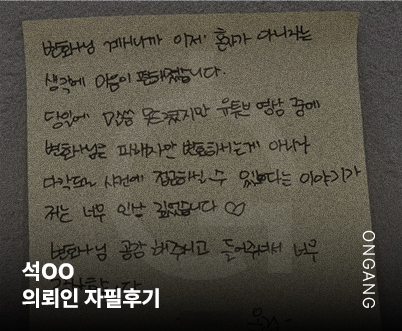 변호사님 계시니까 이제 혼자가 아니라는
생각에 마음이 편해졌습니다.
당일에 말씀 못드렸지만 유튜브 영상 중에
변호사님은 피해자만 변호하시는게 아니라
다각도로 사건에 접근하실 수 있다는 이야기가
저는 너무 인상 깊었습니다 ♡
변호사님 공감 해주시고 들어주셔서 너무
석OO
의뢰인 자필후기
ONGANG